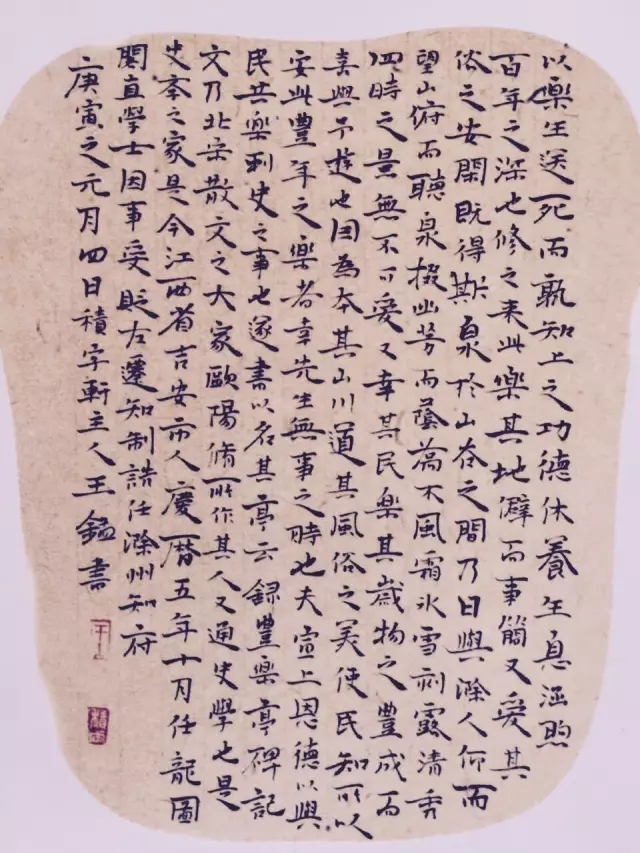 以樂生送死而孰知上之功德休養生息涵煦
百年之深也修之来此樂其地僻而事簡又爱其
俗之安閑既得斯泉於山谷之間乃日與滁人仰而
望山俯而聽泉掇幽芳而蔭喬木風霜冰雪刻露清秀
四時之景無不可愛又幸其民樂其歲物之豐成而
喜與予遊也因為本其山川道其風俗之美使民知所以
安此豐年之樂者幸先生無事之時也夫宣上恩德以與
民共樂刺史之事也遂書以名其亭云 録豐樂亭碑記
文乃北宋散文之大家歐陽脩所作其人又通史學也是
史本之家是今江西省吉安市人慶暦五年十月任龍圖
閣直學士因事受貶左遷知制誥任滁州知府
庚寅之元月四日積字軒主人王鎰書